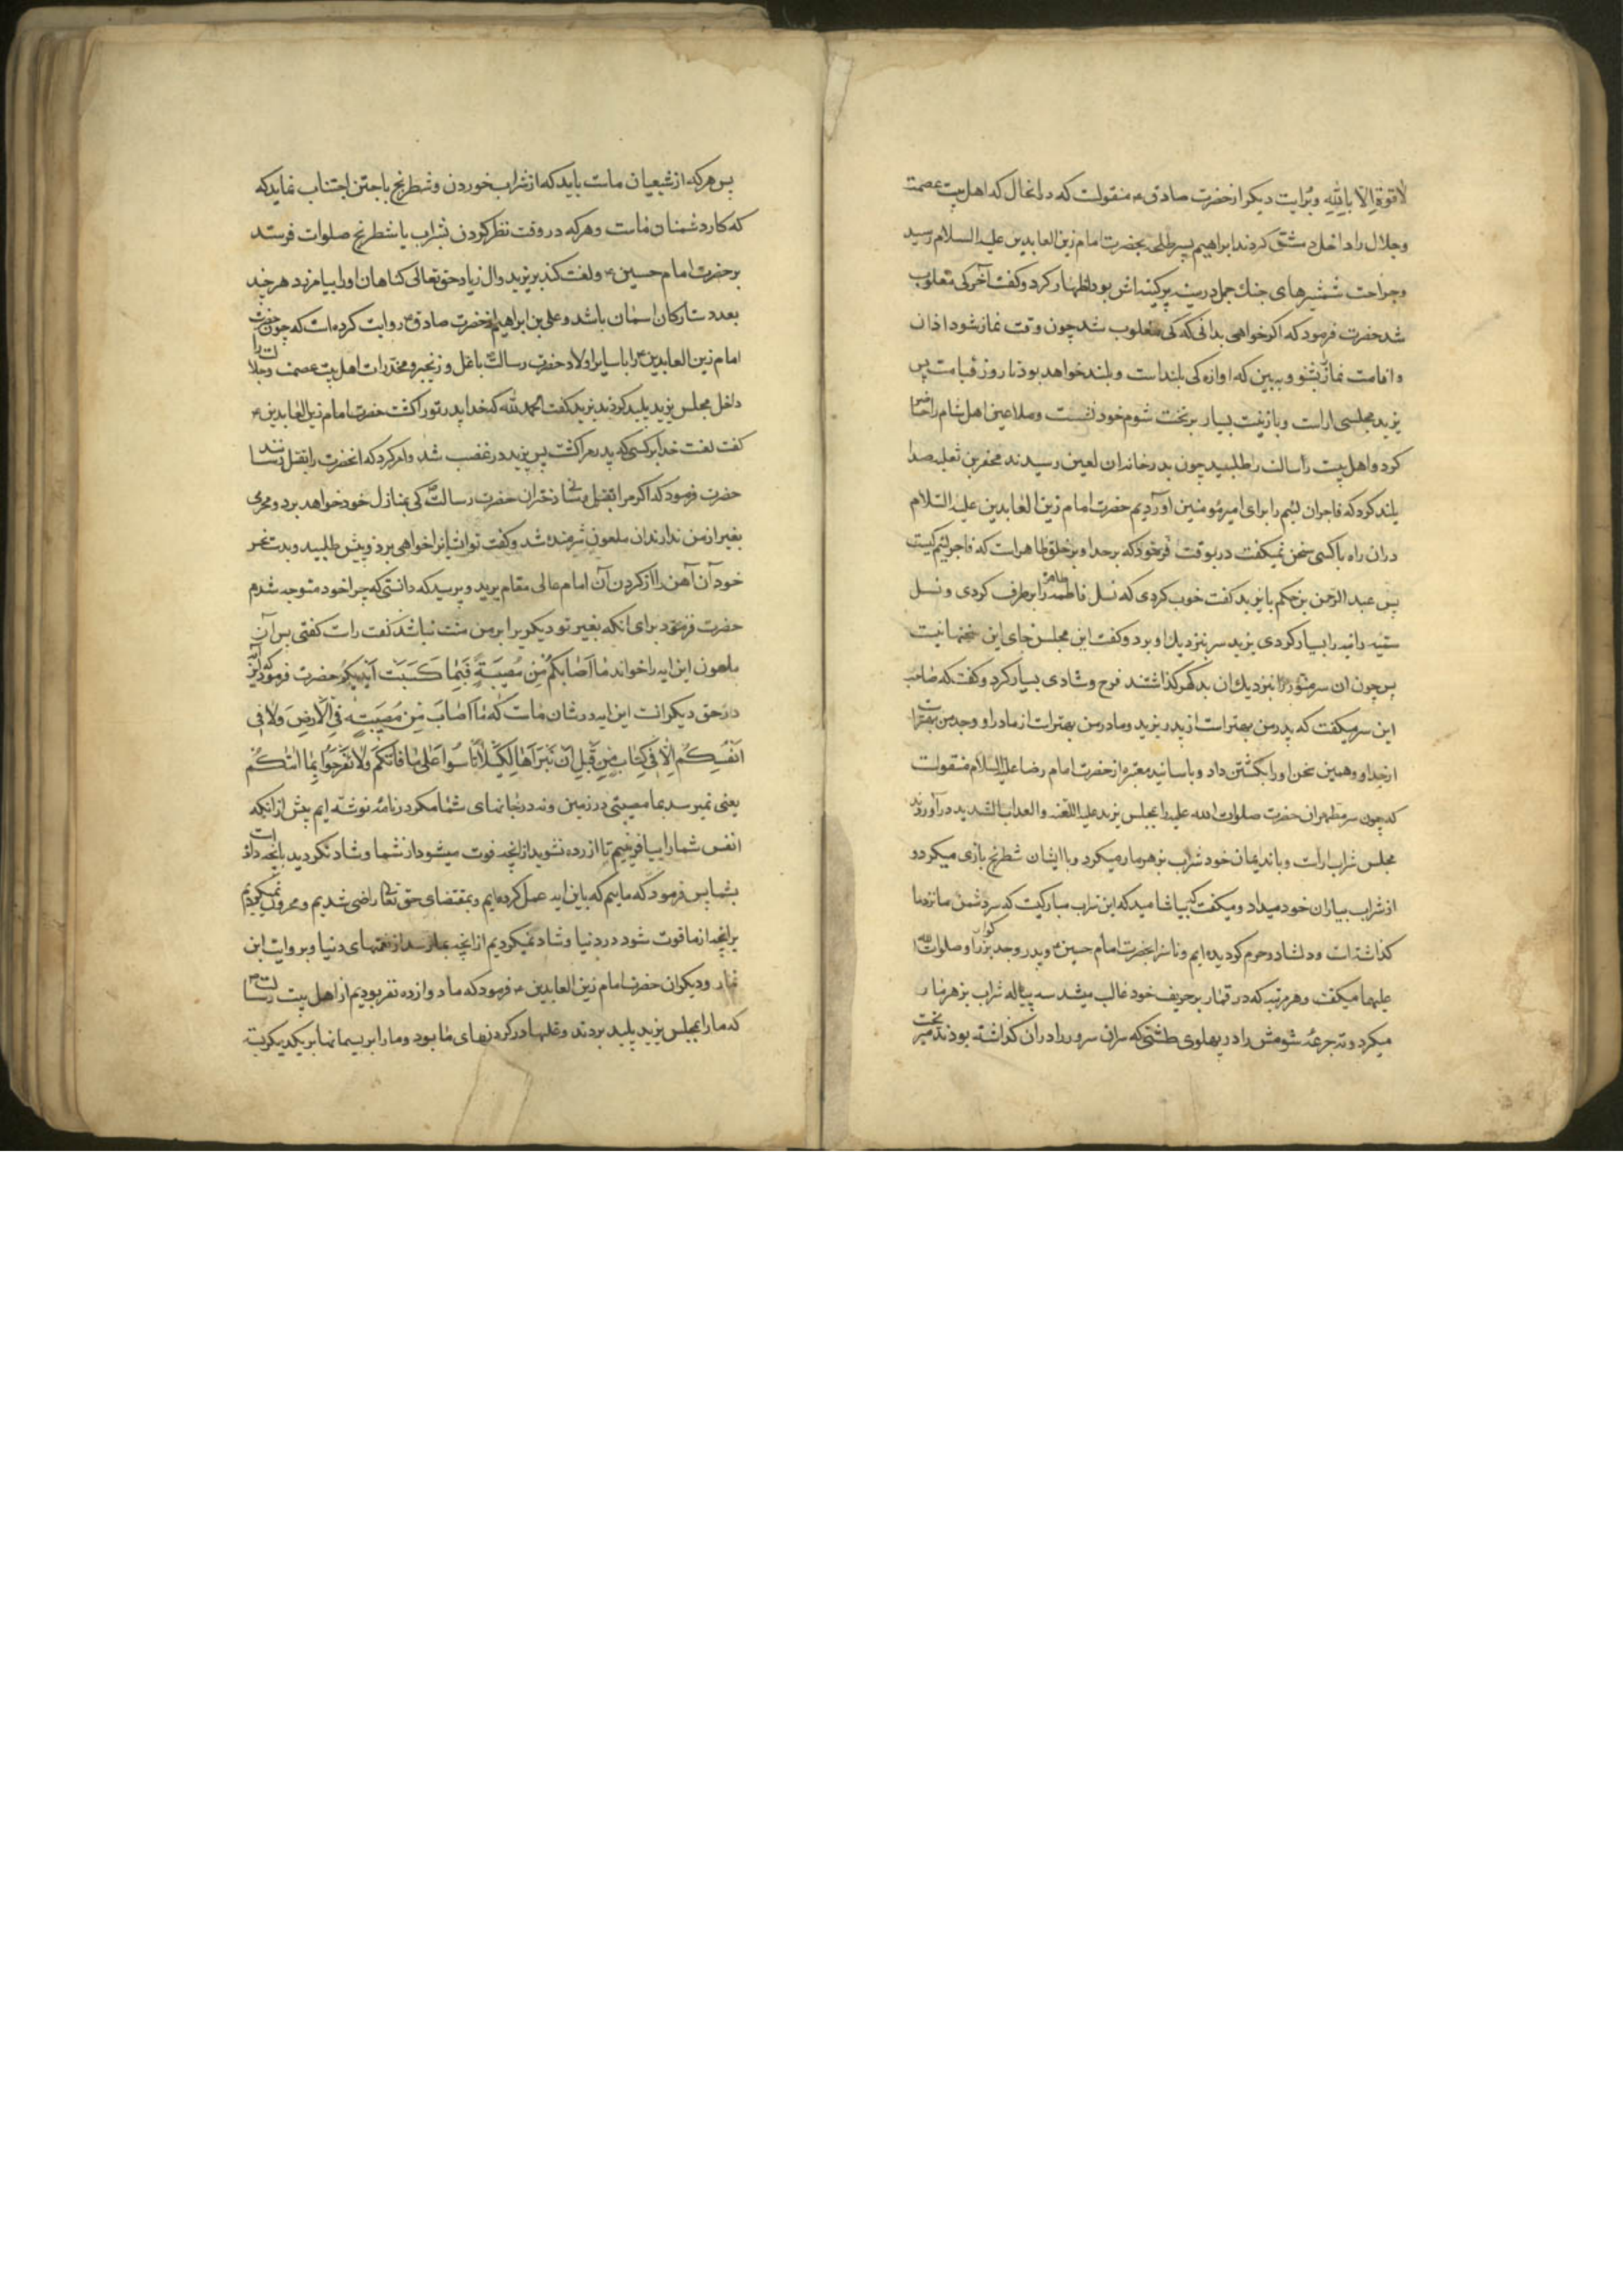 لاقوة الا بالله وبرایت دیکر از حضرت صادق ع منقولست که در انحال که اهل بیت عصمت
وجلال را داخل دمشق کردند ابراهیم پسر طلحه بحضرت امام زین العابدین علیه السلام رسید
وجراحت شمشیرهای جنك جمل در سینه پرکینه اش بود اظهار کرد و کفت آخر کی مغلوب
شد حضرت فرمود که اکر خواهی بدانی که کی مغلوب شد چون وقت نماز شود اذان
واقامت نماز بشنو و ببین که اوازه کی بلند است وبلند خواهد بود تا روز قیامت پس
یزید مجلسی اراست وبازینت بسیار بر تخت شوم خود نشست وملاعین اهل شام را حاضر
کرد و اهل بیت رسالت را طلبید چون بدر خانه ان لعین رسیدند محفر بن ثعلبه صدا
بلند کرد که فاجران لئیم را برای امیر مؤمنین آوردیم حضرت امام زین العابدین علیه السلام
دران راه باکسی سخن نمیکفت درین وقت فرمود که بر خدا و بر خلق ظاهر است که فاجر لئیم کیست
پس عبد الرحمن بن حکم با یزید کفت خوب کردی که نسل فاطمه طاهره را بر طرف کردی و نسل
سمیه زانیه را بسیار کردی یزید سر بنزدیك او برد و کفت این مجلس جای این سخنها نیست
پس چون ان سر منور را بنزدیك ان بد کهر کذاشتند فرح وشادی بسیار کرد و کفت که صاحب
این سر میکفت که پدر من بهتر است از پدر یزید ومادر من بهتر است از مادر او وجد من بهتر است
از جد او وهمین سخن او را بکشتن داد و باسانید معتبره از حضرت امام رضا علیه السلام منقولست
که چون سر مطهر ان حضرت صلوات الله علیه را بمجلس یزید علیه اللعنه والعذاب الشدید در آوردند
مجلس شراب اراست و باندیمان خود شراب زهرمار میکرد و با ایشان شطرنج بازی میکرد و
از شراب بیاران خود میداد و میکفت که بیاشامید که این شراب مبارکیست که سر دشمن ما نزد ما
کذاشته است و دلشاد و خرم کردیده ایم و ناسزا بحضرت امام حسین ع و پدر و جد بزرکوار او صلوات الله
علیهما میکفت و هر مرتبه که در قمار بر حریف خود غالب میشد سه پیاله شراب زهرمار
میکرد و ته جرعه شومش را در پهلوی طشتی که سر ان سرور را در ان کذاشته بودند میریخت
پس هر که از شیعیان ماست باید که از شراب خوردن وشطرنج باختن اجتناب نماید که
که کار دشمنان ماست وهر که در وقت نظر کردن بشراب یا شطرنج صلوات فرستد
بر حضرت امام حسین ع ولعنت کند بر یزید وال زیاد حق تعالی کناهان او را بیامرزد هر چند
بعدد ستارکان اسمان باشد و علی بن ابراهیم از حضرت صادق ع روایت کرده است که چون حضرت
امام زین العابدین ع را با سایر اولاد حضرت رسالت ص باغل وزنجیر ومخدرات اهل بیت عصمت وجلالت را
داخل مجلس یزید پلید کردند یزید کفت الحمد لله که خدا پدر تو را کشت حضرت امام زین العابدین ع
کفت لعنت خدا بر کسی که پدر مرا کشت پس یزید در غضب شد وامر کرد که انحضرت را بقتل رسانند
حضرت فرمود که اکر مرا بقتل رسانی دختران حضرت رسالت ص کی بمنازل خود خواهد برد ومحرمی
بغیر از من ندارند ان ملعون شرمنده شد وکفت تو انها را خواهی برد و پیش طلبید وبدست نحس
خود آن آهن را از کردن آن امام عالی مقام برید و پرسید که دانستی که چرا خود متوجه شدم
حضرت فرمود برای انکه بغیر تو دیکر یرا بر من منت نباشد کفت راست کفتی پس آن
ملعون این ایه را خواند ما اَصَابَکُمْ مِنْ مُصِیبَةٍ فَبِمَا کَسَبَتْ اَیْدِیکُمْ حضرت فرمود که این آیه
در حق دیکر انست این ایه در شان ماست که مٰا اَصٰابَ مِنْ مُصِیبَةٍ فِی الْاَرْضِ وَلَا فِی
اَنْفُسِکُمْ اِلَّا فِی کِتَابٍ مِنْ قَبْلِ اَنْ نَبْرَاَهَا لِکَیْلَا تَاْسَوْا عَلٰی مَا فَاتَکُمْ وَلَا تَفْرَحُوا بِمَا اٰتٰکُمْ
یعنی نمیرسد بما مصیبتی در زمین ونه در جانهای شما مکر در نامه نوشته ایم پیش از انکه
انفس شما را بیافرینیم تا ازرده نشوید از انچه فوت میشود از شما وشاد نکردید بانچه داده است
بشما پس فرمود که ماییم که باین ایه عمل کرده ایم و بمقتضای حق تعالی راضی شدیم و محزون نمیکردیم
بر انچه از ما فوت شود در دنیا وشاد نمیکردیم از انچه بما رسد از نعمتهای دنیا و بروایت ابن
نما ودیکران حضرت امام زین العابدین ع فرمود که ما دوازده نفر بودیم از اهل بیت رسالت ص
که ما را بمجلس یزید پلید بردند وغلها در کردنهای ما بود وما را بریسمانها بر یکدیکر بسته